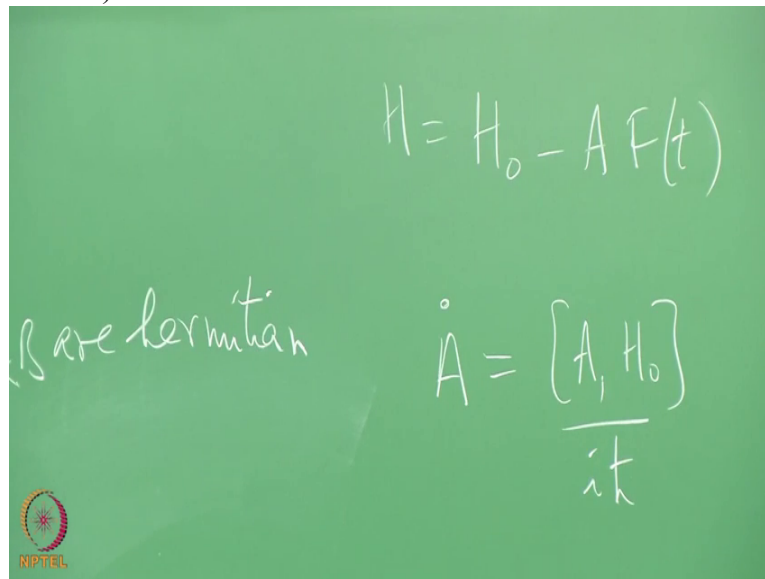 H = H₀ − A F(t)
B are hermitian
Ȧ = [A, H₀] / iħ
NPTEL